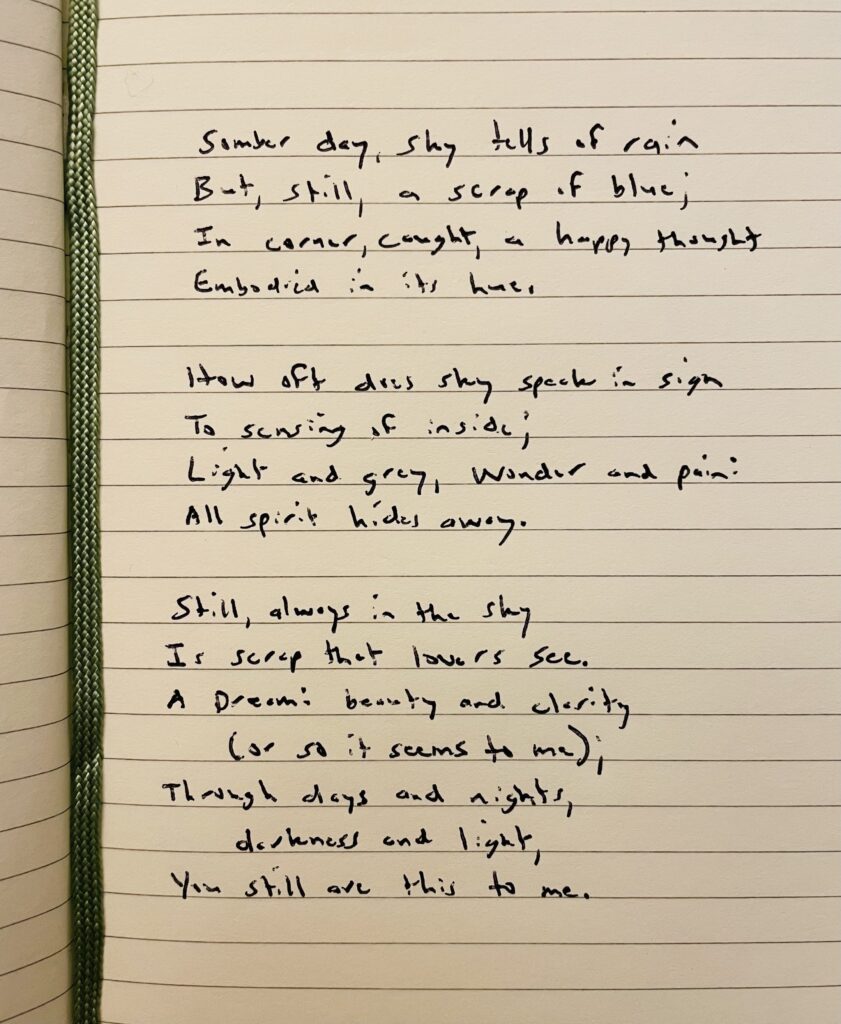 Somber day, sky tells of rain
But, still, a scrap of blue;
In corner, caught, a happy thought
Embodied in its hue.
How oft does sky speak in sign
To sensing of inside;
Light and grey, wonder and pain:
All spirit hides away.
Still, always in the sky
Is scrap that lovers see.
A Dream: beauty and clarity
(or so it seems to me);
Through days and nights,
darkness and light,
You still are this to me.